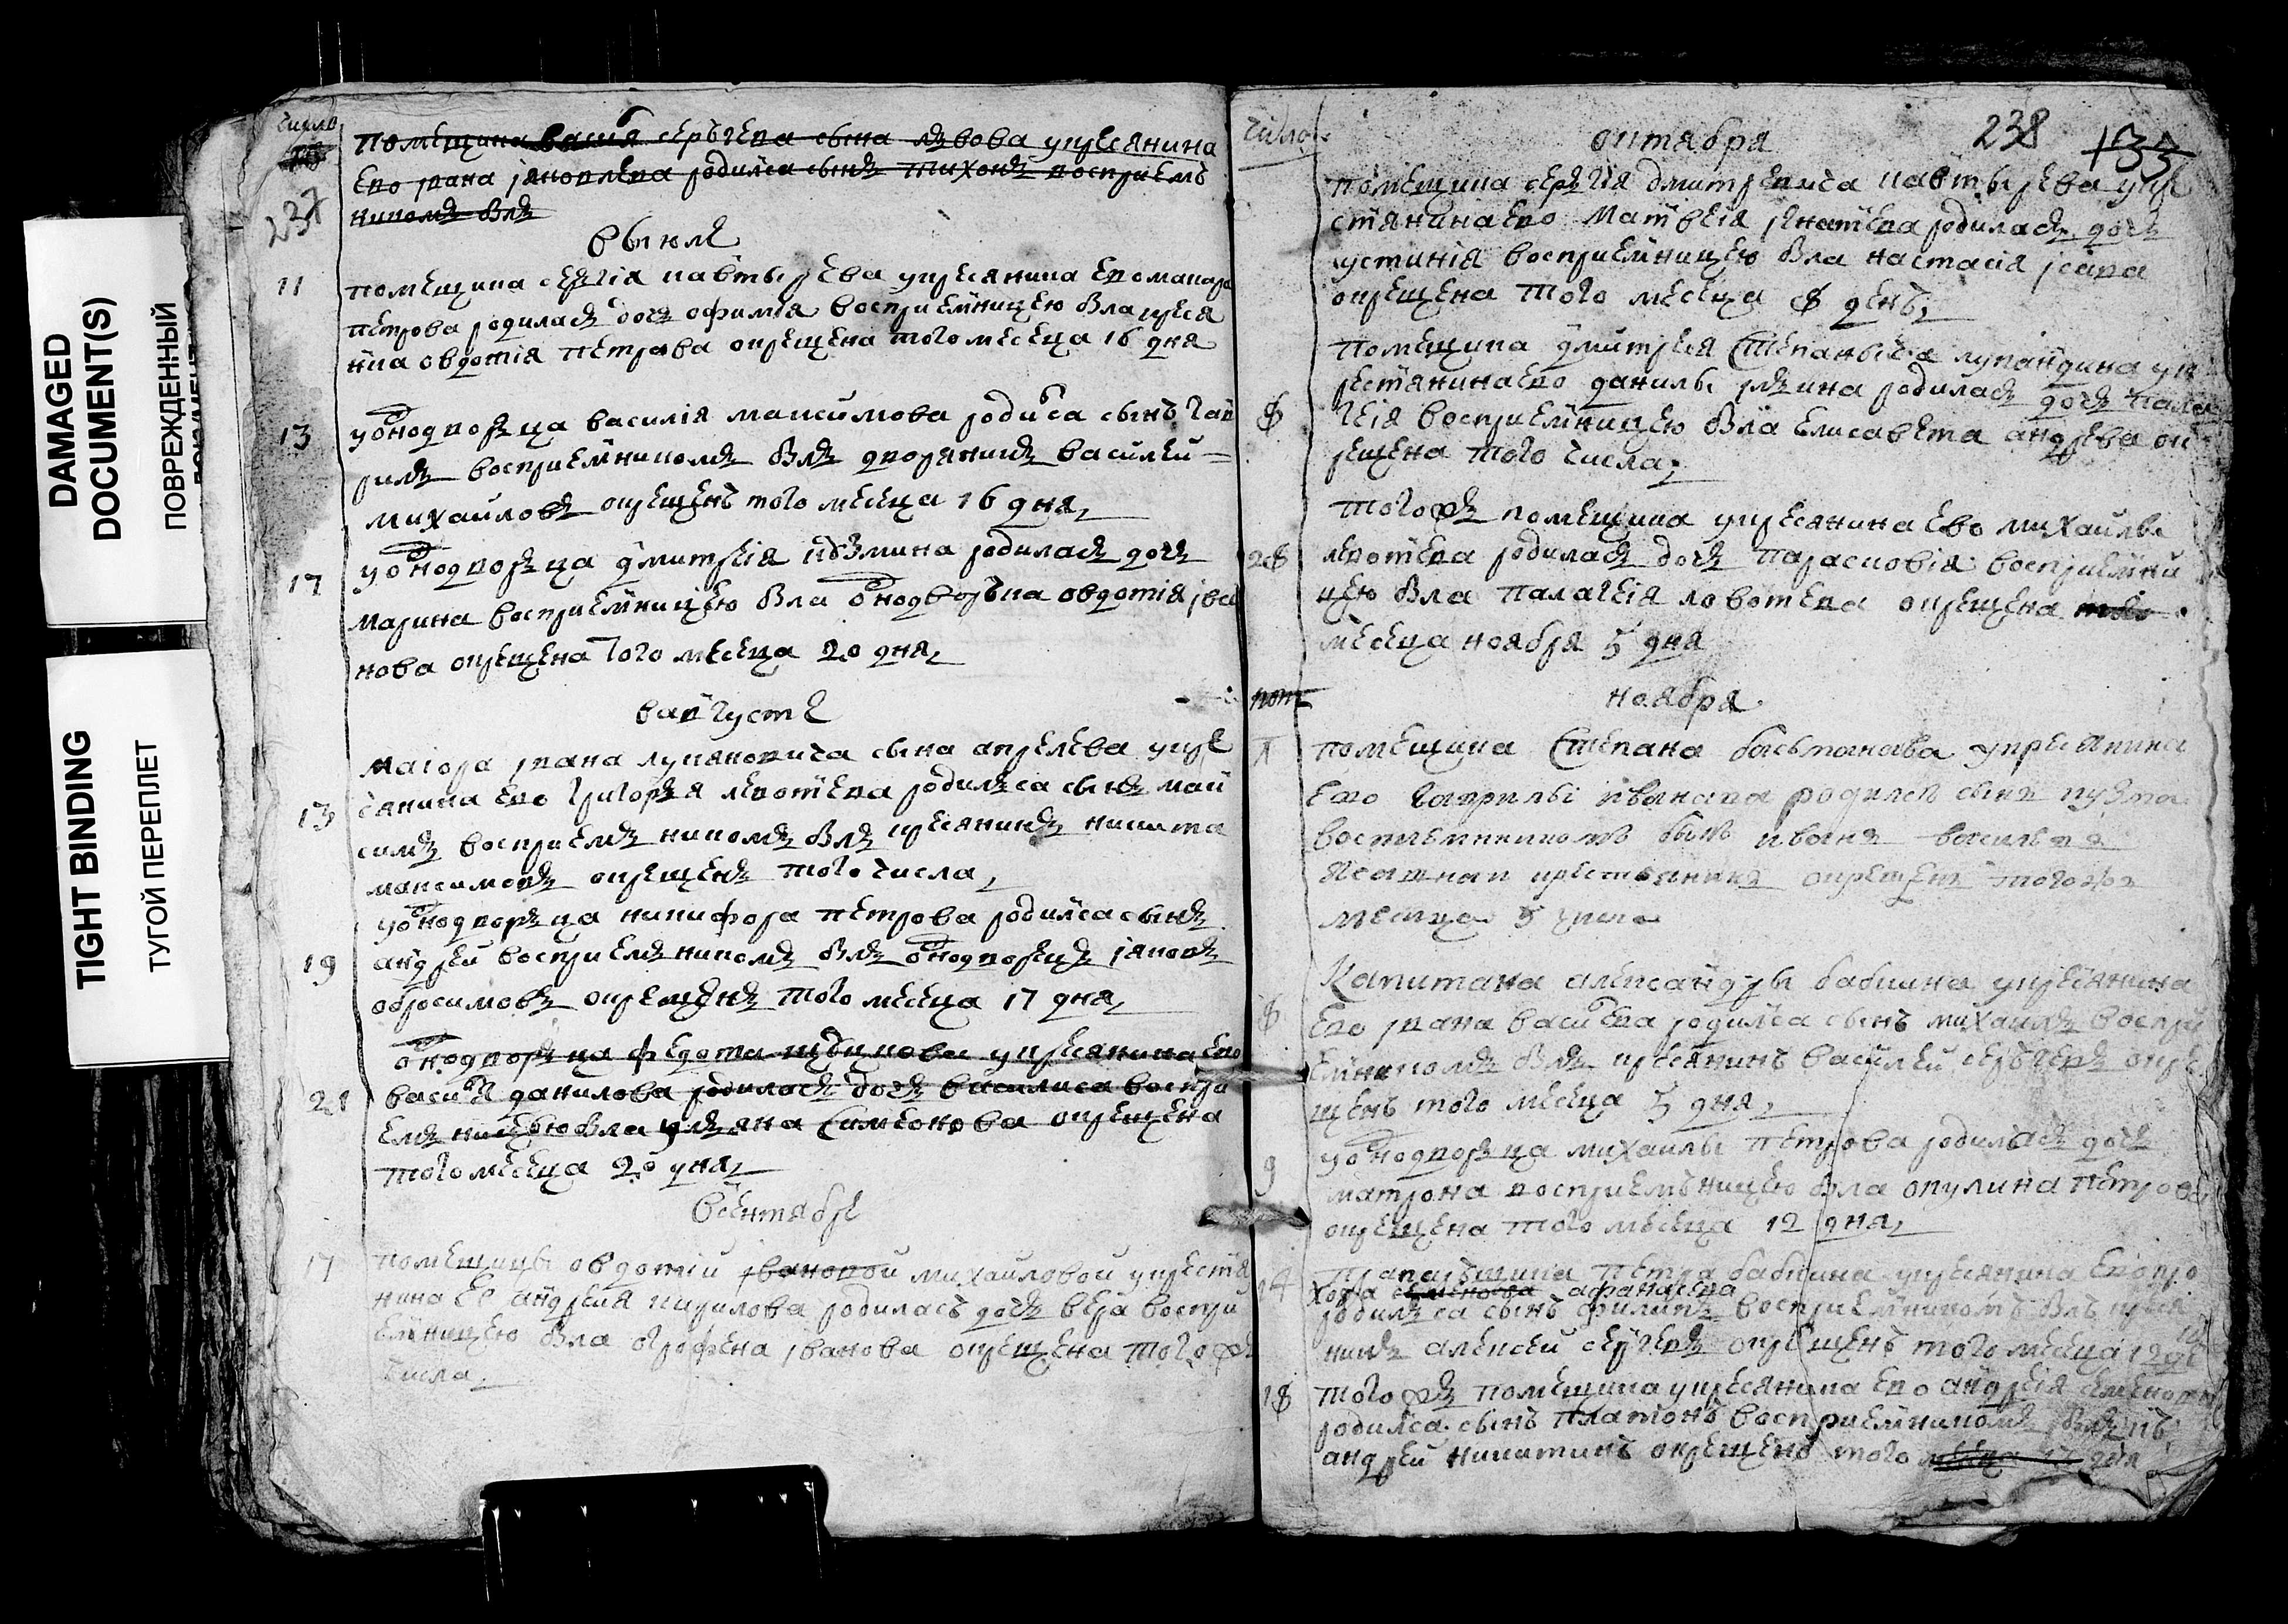 DAMAGED
DOCUMENT(S)
ПОВРЕЖДЕННЫЙ
TIGHT BINDING
ТУГОЙ ПЕРЕПЛЕТ
число
помещика василя серъгева сына лвова укресянина
ево ивана яковлева родилса сынъ тихонъ восприемъ
никомъ блъ
237
в июле
11
помещика сергія кавтырева укресянина ево макара
петрова родилась дочь офимія восприемницею бла кресян
ика овдотія петрова окрещена того месеца 16 дня
13
уоноднорца василія максимова родилса сынъ гав
рилъ восприемникомъ блъ дворянинъ василей
михайловъ окрещенъ того месеца 16 дня
17
уоноднорца дмитрея кузмина родилась дочь
марина восприемницею бла оноднорка овдотія ива
нова окрещена того месеца 20 дня
в августе
маіора ивана лукяновича сына апрелева укре
13
сянина ево григорья леонтева родилса сынъ мак
симъ восприемникомъ блъ кресянинъ никита
максимовъ окрещенъ того числа
уоноднорца никифора петрова родилса сынъ
19
андрей восприемникомъ блъ оноднорецъ яковъ
обросимовъ окрещенъ того месеца 17 дня
оноднорца федота укресянина ево
21
василя данилова родилась дочь василиса воспри
емницею бла уляна симеонова окрещена
того месеца 20 дня
в сентябре
17
помещицы овдотіи ивановой михайловой укрестя
нина ее андрея кирилова родилась дочь вера воспри
емницею бла огрофена иванова окрещена того ж
числа
число
октября
238
133
помещика сергія дмитревича кавтырева укре
стянина ево матвея игнатева родилась дочь
устинія восприемницею бла настасія
окрещена того месеца 8 день
помещика дмитрея степаныча лупандина ук
рестянина ево данилы илина родилась дочь пала
8
гея восприемницею бла елисавета андрева ок
рещена того числа
того ж помещика укресянина ево михайлы
28
леонтева родилась дочь парасковія восприемни
цею бла палагея леонтева окрещена того
месеца ноября 5 дня
ноября
помещика степана басманова укресянина
ево гаврилы иванова родился сынъ кузма
восприемникомъ былъ иванъ василевъ
крестьянинъ окрещенъ того ж
месеца 5 числа
капитана александры бабкина укресянина
8
ево ивана василева родилса сынъ михаилъ воспри
емникомъ блъ кресянинъ василей серъгевъ окре
щенъ того месеца 5 дня
уоноднорца михаилы петрова родилась дочь
9
матрона восприемъницею бла окулина петрова
окрещена того месеца 12 дня
14
прапорщика петра бабкина укресянина ево про
хора семенова афанасева
родилса сынъ филипъ восприемникомъ блъ кресян
нинъ алексей сергевъ окрещенъ того месеца 19
18
того ж помещика укресянина ево андрея семенова
родилса сынъ платонъ восприемникомъ блъ
андрей никитинъ окрещенъ того месеца 17 дня